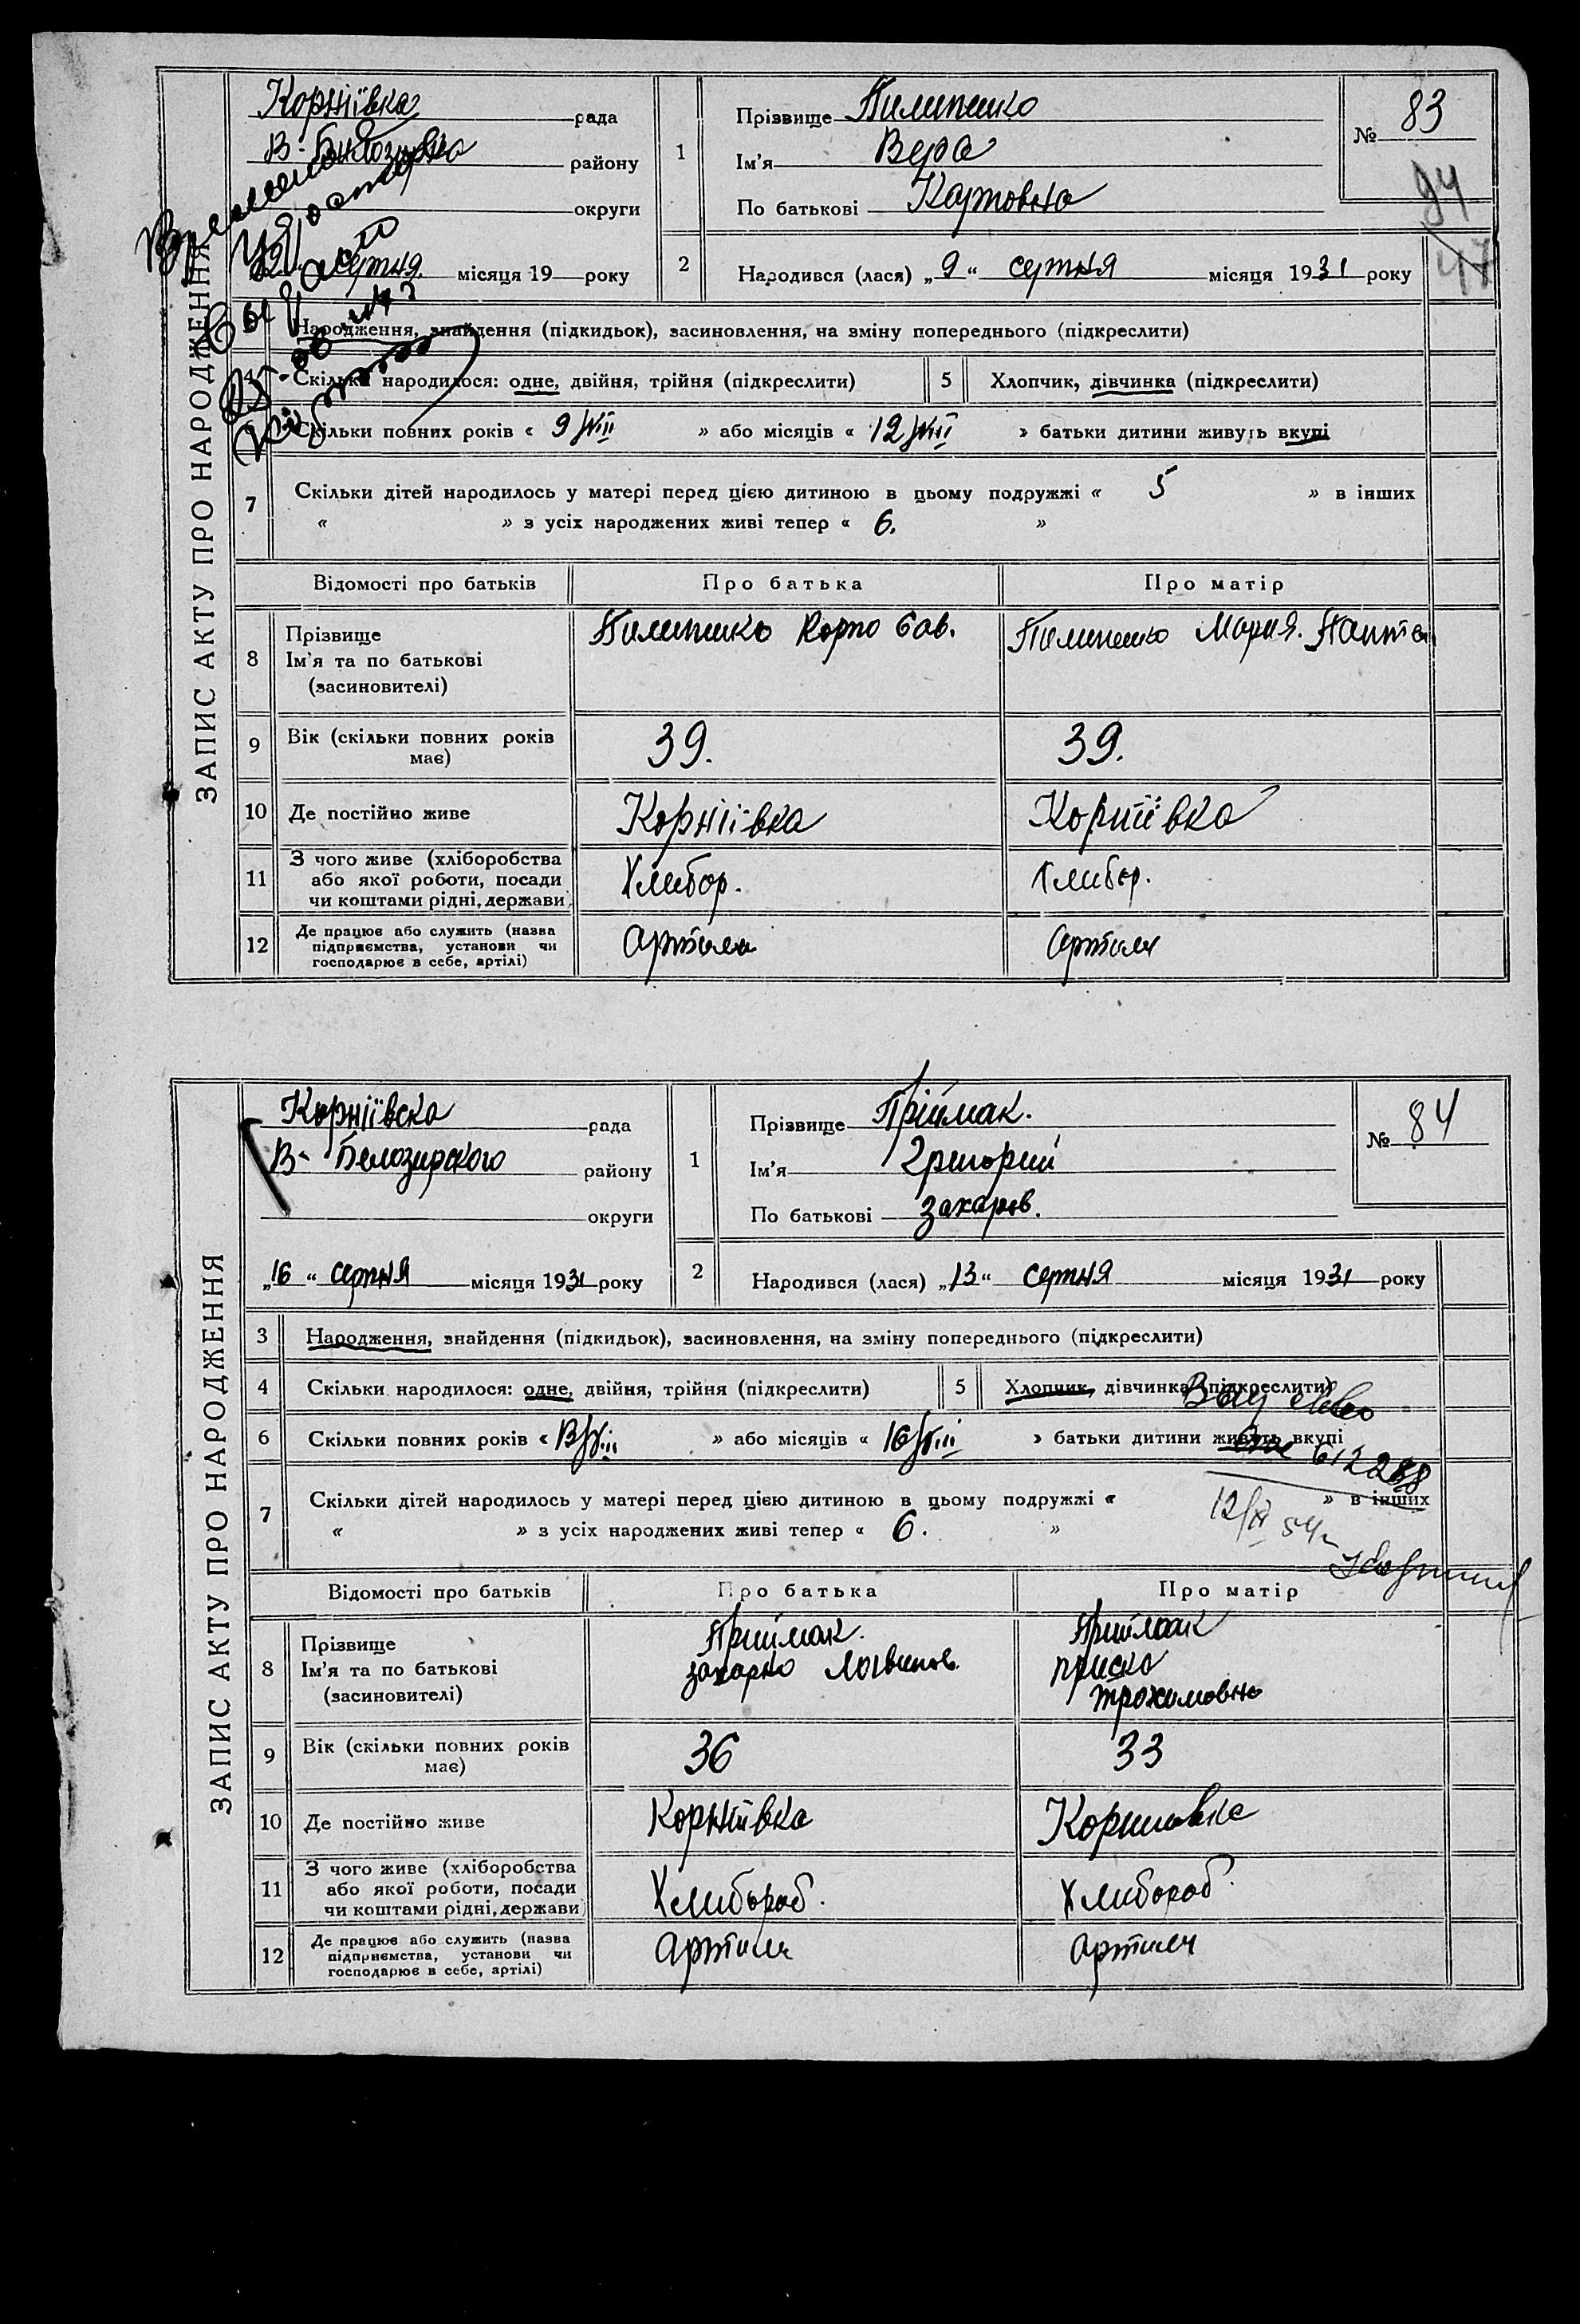 ЗАПИС АКТУ ПРО НАРОДЖЕННЯ
Корніївка рада
В- району
округи
серпня місяця 19 року
1 Прізвище Пилипенко
Ім'я Вера
По батькові Карповна
№ 83
94
47
2 Народився (лася) „9“ серпня місяця 1931 року
Народження, знайдення (підкидьок), засиновлення, на зміну попереднього (підкреслити)
4 Скільки народилося: одне, двійня, трійня (підкреслити) 5 Хлопчик, дівчинка (підкреслити)
Скільки повних років « 9/VIII » або місяців « 12/VIII » батьки дитини живуть вкупі
7 Скільки дітей народилось у матері перед цією дитиною в цьому подружжі « 5 » в інших
« » з усіх народжених живі тепер « 6. »
Відомості про батьків Про батька Про матір
8 Прізвище Ім'я та по батькові (засиновителі) Пилипенко Карпо Сав. Пилипенко Мария.
9 Вік (скільки повних років має) 39. 39.
10 Де постійно живе Корніївка Корніївка
11 З чого живе (хліборобства або якої роботи, посади чи коштами рідні, держави) Хлибор. Хлибор.
12 Де працює або служить (назва підприємства, установи чи господарює в себе, артілі) Артиль Артиль
ЗАПИС АКТУ ПРО НАРОДЖЕННЯ
Корніївска рада
В- Белозирского районУ
округи
„16“ серпня місяця 1931 року
1 Прізвище Приймак.
Ім'я Григорий
По батькові Захаров.
№ 84
2 Народився (лася) „13“ серпня місяця 1931 року
3 Народження, знайдення (підкидьок), засиновлення, на зміну попереднього (підкреслити)
4 Скільки народилося: одне, двійня, трійня (підкреслити) 5 Хлопчик, дівчинка (підкреслити)
6 Скільки повних років « 13/VIII » або місяців « 16/VIII » батьки дитини живуть вкупі
612288
7 Скільки дітей народилось у матері перед цією дитиною в цьому подружжі « » в інших
« » з усіх народжених живі тепер « 6. »
Відомості про батьків Про батька Про матір
8 Прізвище Ім'я та по батькові (засиновителі) Приймак. Захарко Логвинов. Приймак Приска Трохимовна
9 Вік (скільки повних років має) 36 33
10 Де постійно живе Корніївка Корниивка
11 З чого живе (хліборобства або якої роботи, посади чи коштами рідні, держави) Хлибороб. Хлибороб.
12 Де працює або служить (назва підприємства, установи чи господарює в себе, артілі) Артиль Артиль